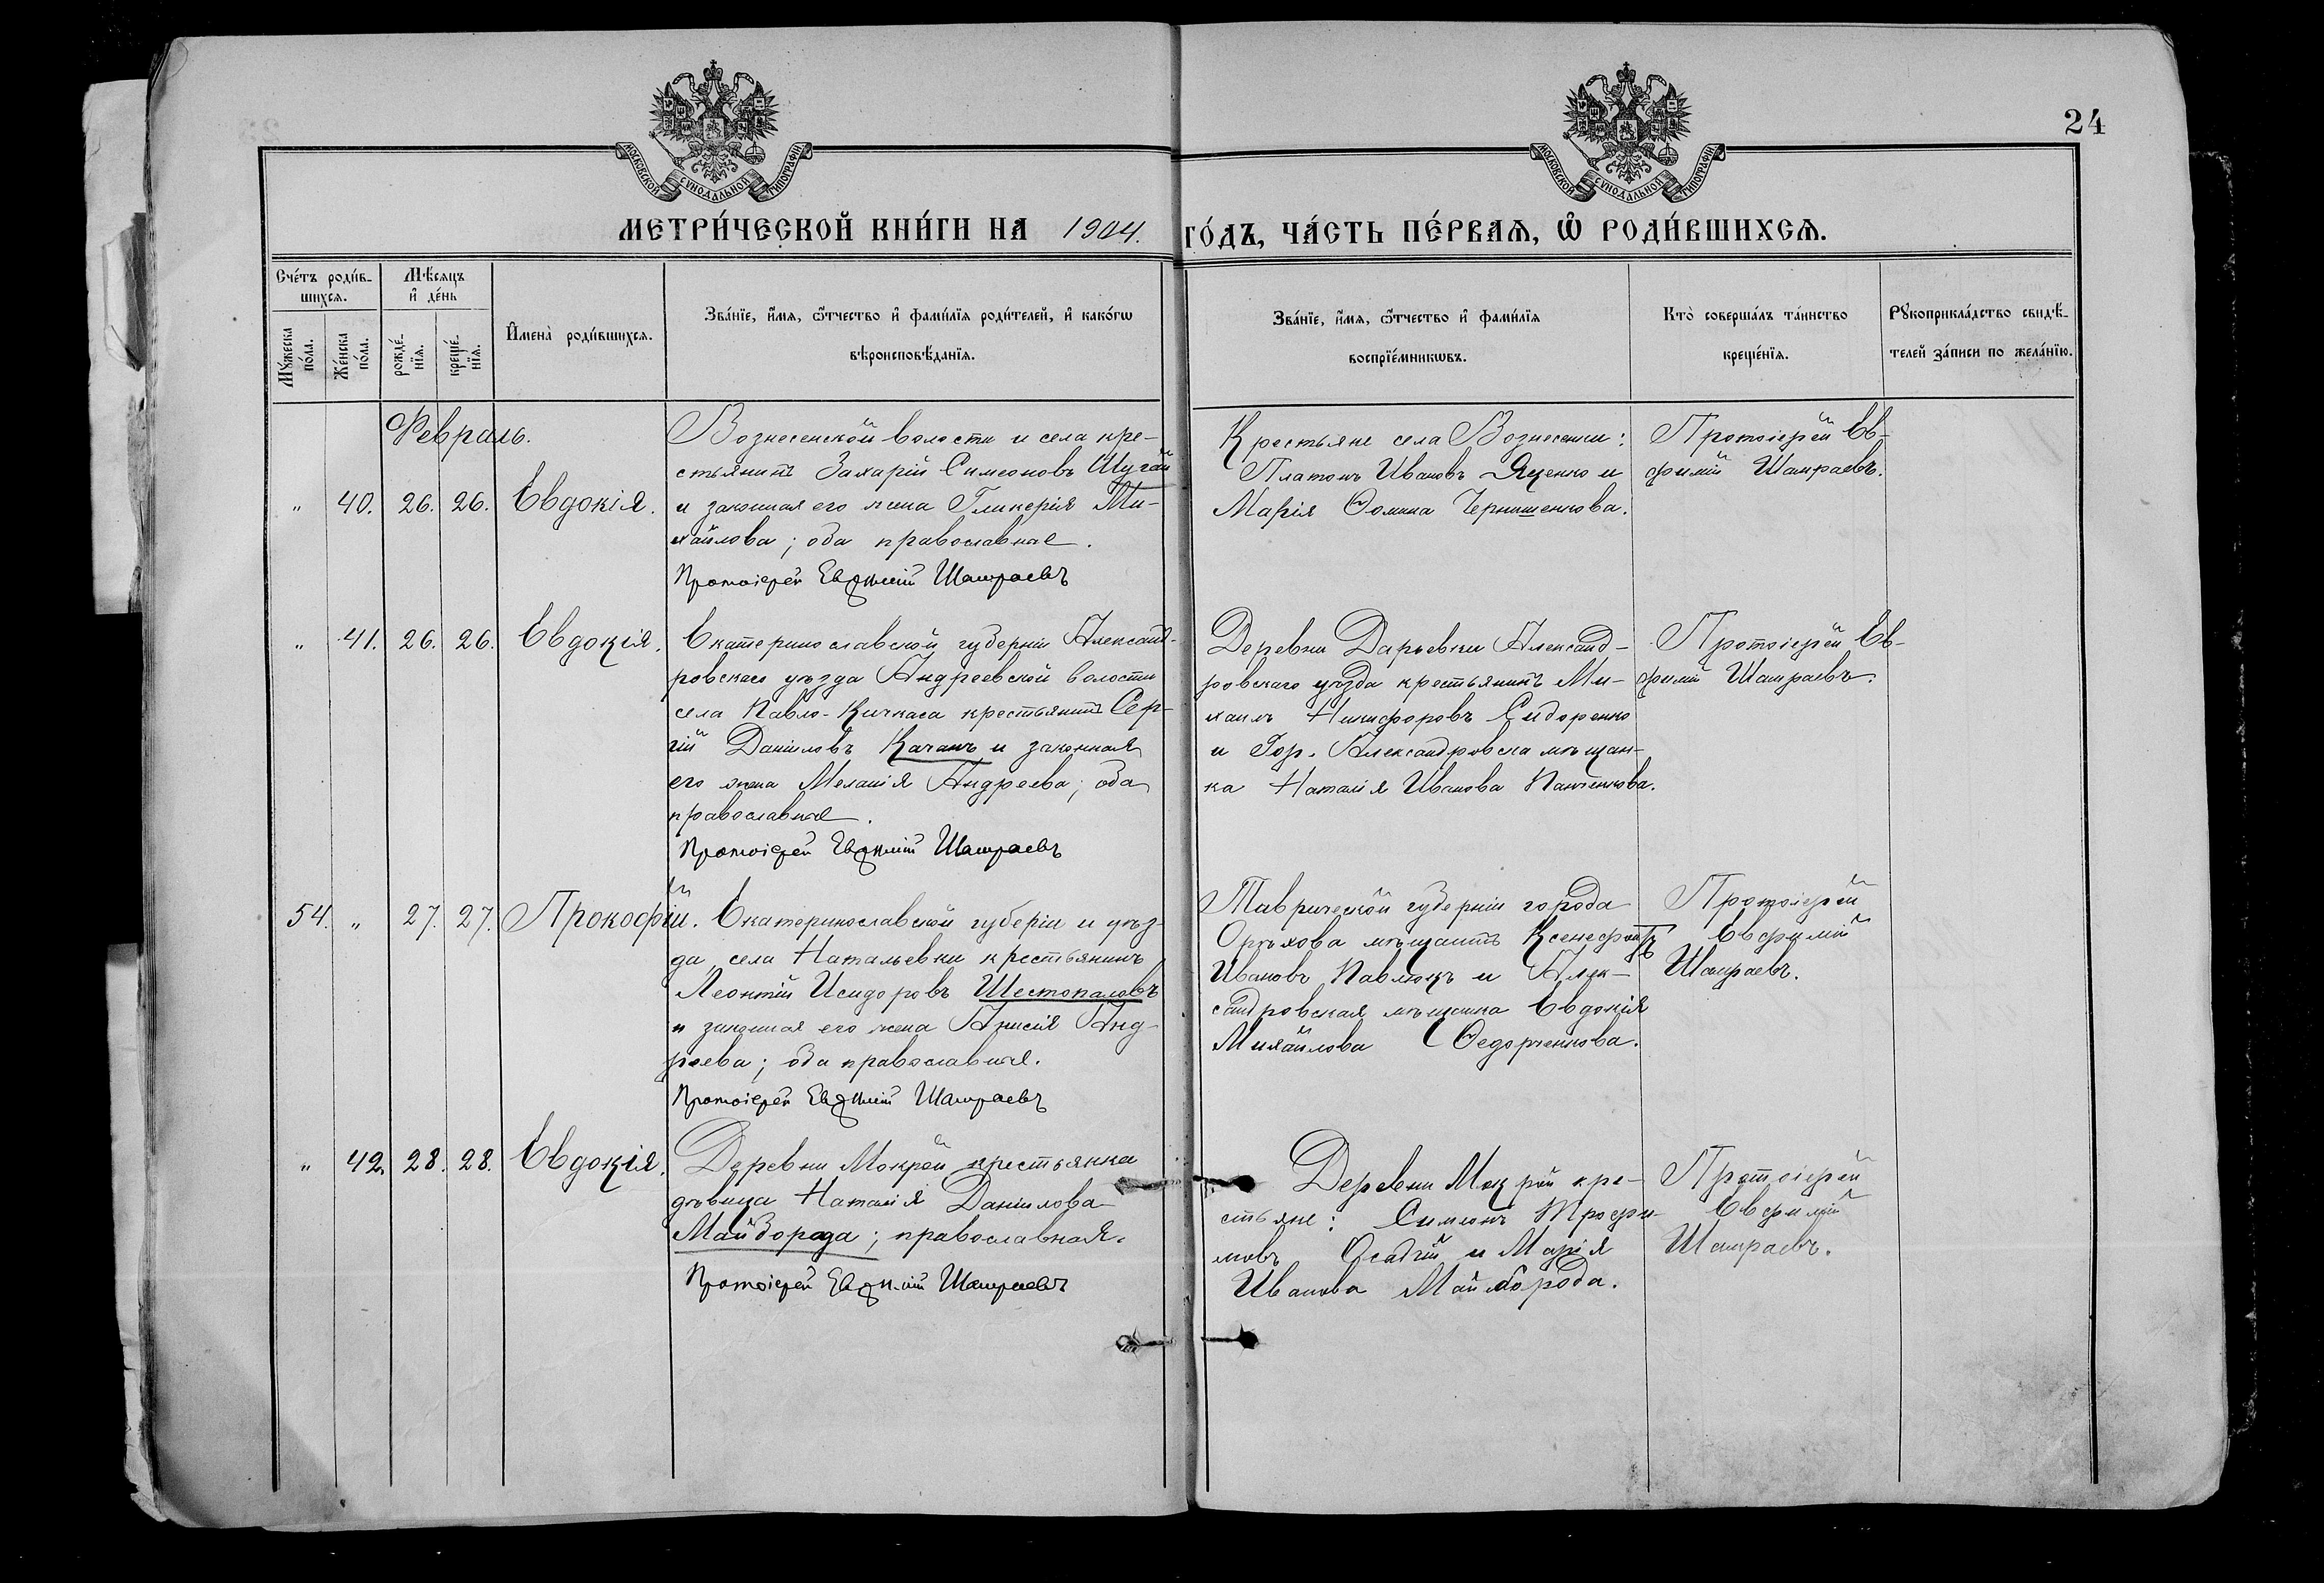 24
МОСКОВСКОЙ СѴНОДАЛЬНОЙ ТИПОГРАФІИ
МОСКОВСКОЙ СѴНОДАЛЬНОЙ ТИПОГРАФІИ
МЕТРИ́ЧЕСКОЙ КНИ́ГИ НА 1904. ГО́ДЪ, ЧА́СТЬ ПЕ́РВАѦ, Ѽ РОДИ́ВШИХСѦ.
Сче́тъ роди́в-
шихсѧ.
Мѣ́сѧцъ
и҆ де́нь
Мꙋ́жеска
по́ла.
Же́нска
по́ла.
рожде́-
нїѧ.
креще́-
нїѧ.
И҆мена̀ роди́вшихсѧ.
Зва́нїе, и҆́мѧ, ѻ҆́тчество и҆ фами́лїѧ роди́телей, и҆ како́гѡ
вѣроисповѣ́данїѧ.
Зва́нїе, и҆́мѧ, ѻ҆́тчество и҆ фами́лїѧ
воспрїе́мникѡвъ.
Кто̀ соверша́лъ та́инство
креще́нїѧ.
Рꙋкоприкла́дство свидѣ́-
телей за́писи по жела́нїю.
Февраль.
" 40. 26. 26. Евдокія.
Вознесенской волости и села кре-
стьянинъ Захарій Симеоновъ Шугай
и законная его жена Гликерія Ми-
хайлова; оба православные.
Протоіерей Евѳимій Шамраевъ
Крестьяне села Вознесенки:
Платонъ Ивановъ Яценко и
Марія Ѳомина Чернышенкова.
Протоіерей Ев-
фимій Шамраевъ.
" 41. 26. 26. Евдокія.
Екатеринославской губерніи Александ-
ровскаго уѣзда Андреевской волости
села Павло-Кичкаса крестьянинъ Сер-
гій Даніиловъ Качанъ и законная
его жена Меланія Андреева; оба
православные.
Протоіерей Евѳимій Шамраевъ
Деревни Дарьевки Александ-
ровскаго уѣзда крестьянинъ Ми-
хаилъ Никифоровъ Сидоренко
и Гор. Александровска мѣщан-
ка Наталія Иванова Панченкова.
Протоіерей Ев-
фимій Шамраевъ.
54. " 27. 27. Прокофій.
Екатеринославской губеріи и уѣз-
да, села Натальевки крестьянинъ
Леонтій Исидоровъ Шестопаловъ
и законная его жена Анисія Анд-
реева; оба православные.
Протоіерей Евѳимій Шамраевъ
Таврической губерніи города
Орѣхова мѣщанинъ Ксенефонтъ
Ивановъ Павлюкъ и Алек-
сандровская мѣщанка Евдокія
Михайлова Ѳедорченкова.
Протоіерей
Евфимій
Шамраевъ.
" 42. 28. 28. Евдокія.
Деревни Мокрой крестьянка
дѣвица Наталія Даніилова
Майборода; православная.
Протоіерей Евѳимій Шамраевъ
Деревни Мокрой кре-
стьяне: Симеонъ Трофи-
мовъ Осадчій и Марія
Иванова Майборода.
Протоіерей
Евфимій
Шамраевъ.